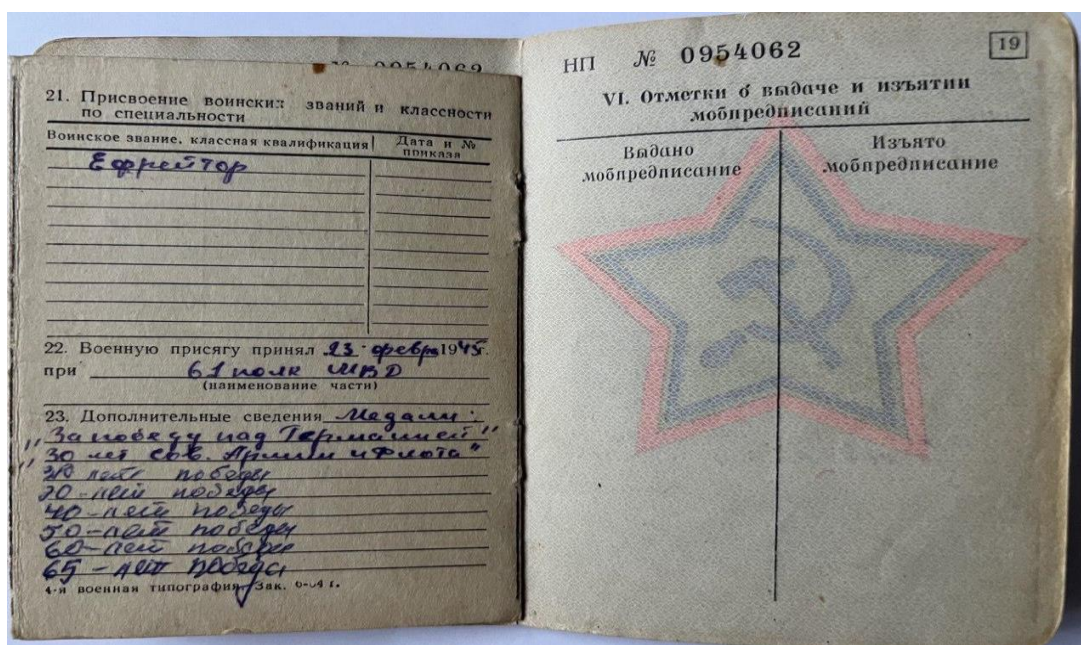 № 0954062
21. Присвоение воинских званий и классности
по специальности
Воинское звание, классная квалификация
Дата и №
приказа
Ефрейтор
22. Военную присягу принял 23 февр 1945 г.
при 61 полк МВД
(наименование части)
23. Дополнительные сведения Медали:
"За победу над Германией"
"30 лет сов. Армии и Флота"
лет победы
20-лет победы
40-лет победы
50-лет победы
60-лет победы
65-лет победы
4-я военная типография. Зак.
НП № 0954062
19
VI. Отметки о выдаче и изъятии
мобпредписаний
Выдано
мобпредписание
Изъято
мобпредписание